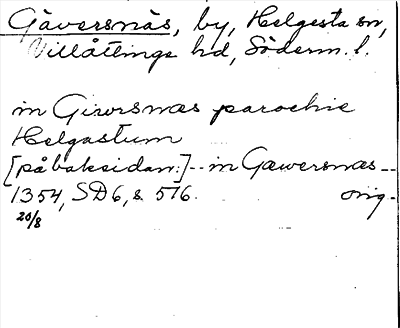 Gäversnäs, by, Helgesta sn,
Villåttinge hd, Söderm. l.
in Giwrsnæs parochie
Helgastum
[på baksidan:] -- in Gæwersnæs --
1354, SD 6, s. 576. orig.
20/8